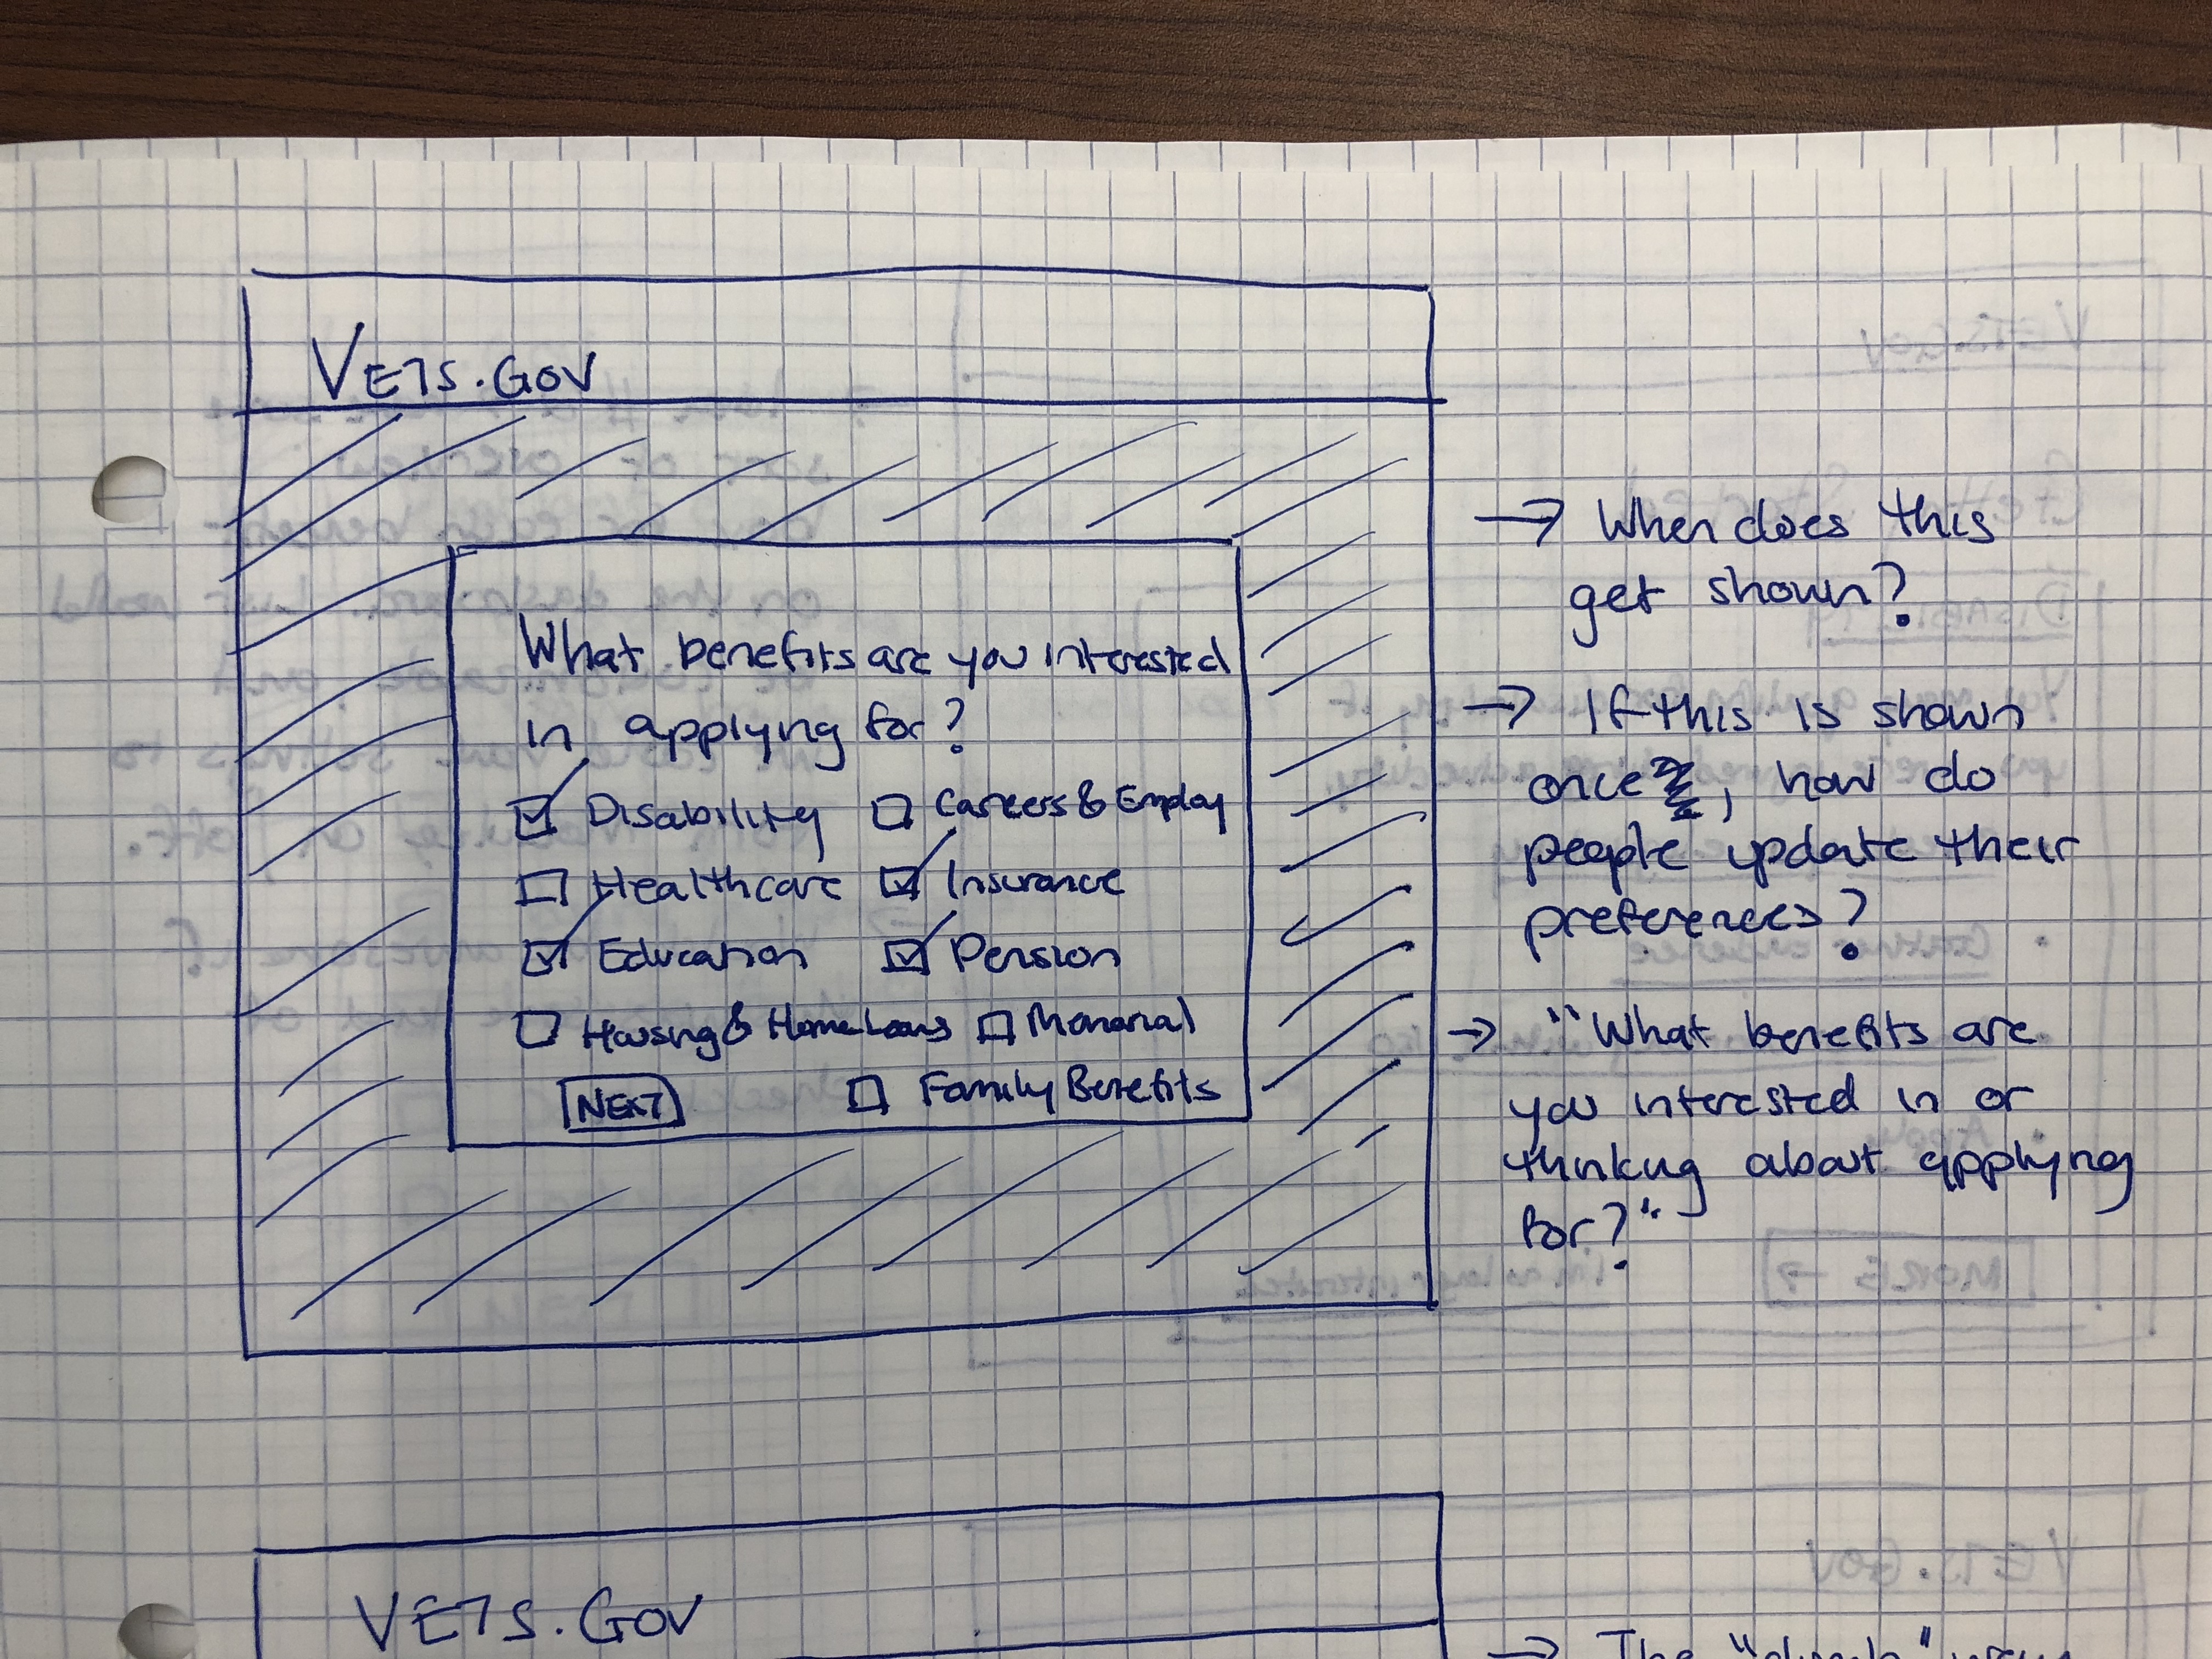 VETS.GOV
What benefits are you interested
in applying for?
Disability
Careers & Employ
Healthcare
Insurance
Education
Pension
Housing & Home Loans
Memorial
NEXT
Family Benefits
→ When does this
get shown?
→ If this is shown
once, how do
people update their
preferences?
→ "What benefits are
you interested in or
thinking about applying
for?"
VETS.GOV
→ The "dumb" way